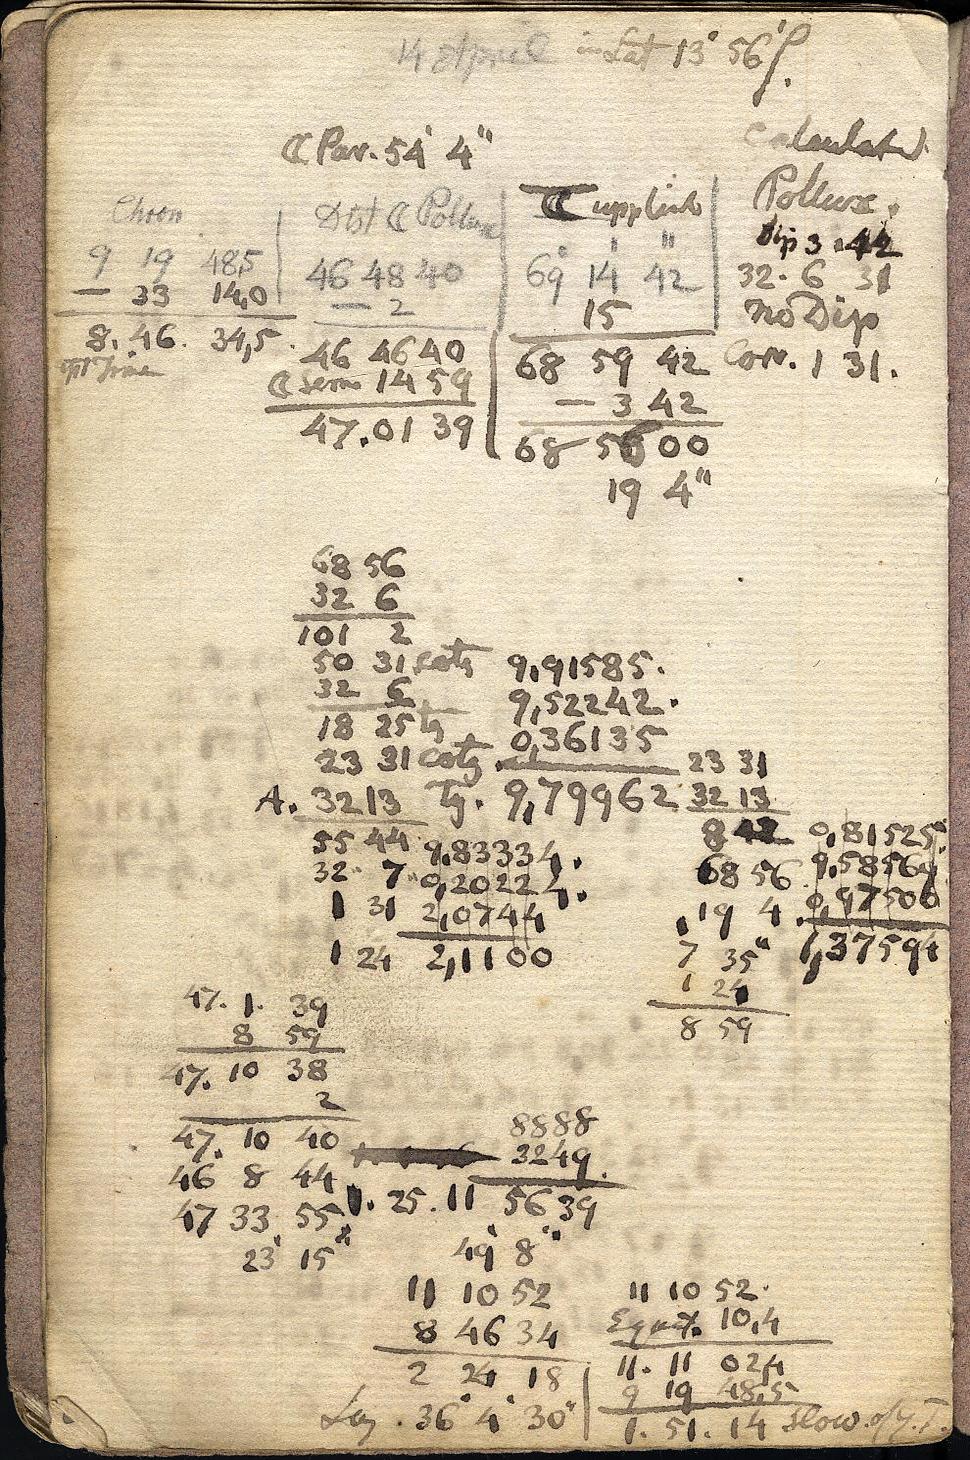 14 April in Lat 13° 56' S.
☾ Par. 54' 4"
Calculated
Chron
Dist ☾ Pollux
☾ upplimb
Pollux.
Dip 3 42
9 19 48,5
46 48 40
69° 14' 42"
32. 6 31
— 33 14,0
— 2
15
No Dip
8. 46. 34,5.
46 46 40
68 59 42
Corr. 1 31.
apt Time
☾ sem 14 59
— 3 42
47.01 39
68 56 00
19 4"
68 56
32 6
101 2
50 31 cotg 9,91585.
32 6 9,52242.
18 25 tg 0,36135
23 31 cotg
A. 32 13 Tg. 9,79962
55 44 9,83334.
32. 7. 0,20222.
1 31 2,0744
1 24 2,1100
23 31
32 13
8 42 0,81525
68 56 9,58569
19 4 0,97500
7 35" 1,37594
1 24
8 59
47. 1. 39
8 59
47. 10 38
2
47. 10 40
46 8 44
47 33 55
23' 15"
8888
3249
1. 25. 11 5639
49' 8"
11 10 52
8 46 34
2 24 18
Lg. 36° 4' 30"
11 10 52.
Equat. 10,4
11. 11 02,4
9 19 48,5
1. 51. 14 slow. of y. T.